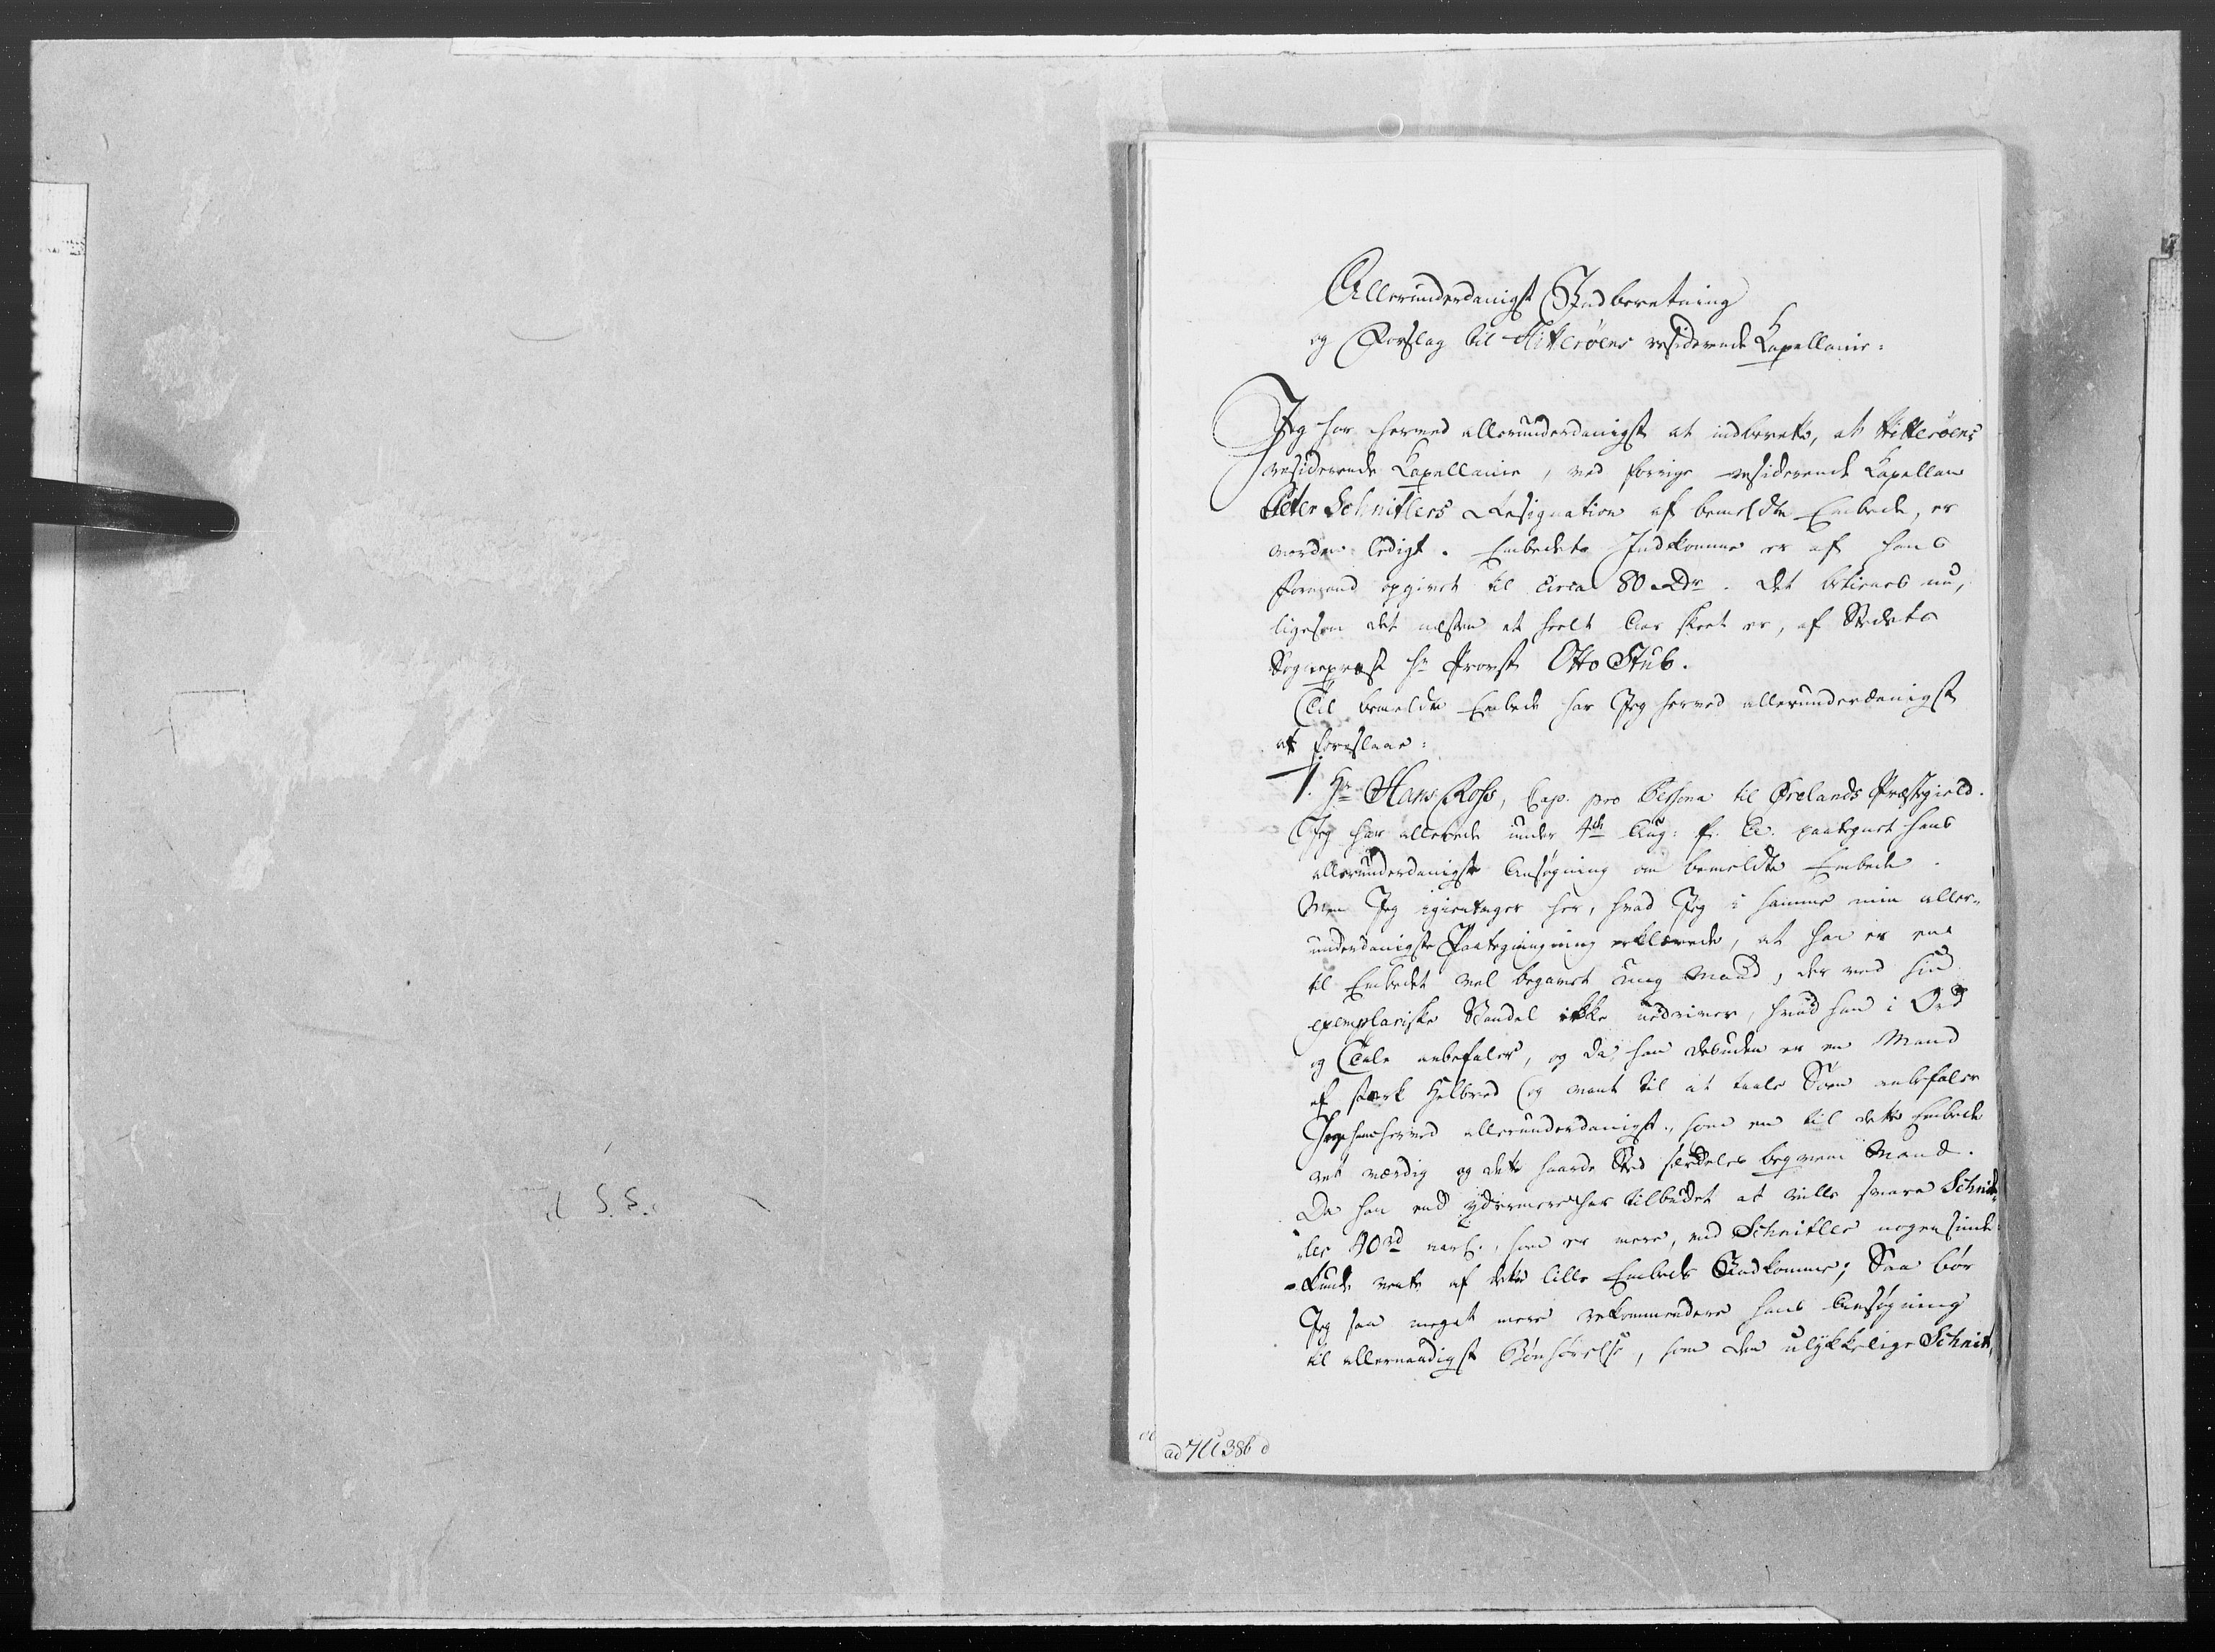 Allerunderdanigst Indberetning
og Forslag til Hitterøens residerende Kapellanie:
Jeg har herved allerunderdanigst at indberette, at Hitterøens
residerende Kapellanie, ved forrige residerende Kapellan
Peter Schnitlers Resignation af bemeldte Embede, er
vorden ledigt. Embedets Indkomme er af hans
Formand opgivet til circa 80 Rdr. Det betienes nu,
ligesom det næsten et heelt Aar skeet er, af Stedets
Sognepræst Hr Provst Otto Stub.
Til bemeldte Embede har Jeg herved allerunderdanigst
at foreslaae:
1. Hr Hans Ross, Cap. pro Persona til Ørelands Præstegield.
Jeg har allerede under 4de Aug: f. A. paategnet hans
allerunderdanigste Ansøgning om bemeldte Embede.
Men Jeg igientager her, hvad Jeg i samme min aller-
underdanigste Paategning erklærede, at han er en
til Embedet vel begavet ung Mand, der ved sin
exemplariske Vandel ikke nedriver, hvad han i Ord
og Tale anbefaler, og da han desuden er en Mand
af stærk Helbred og vant til at taale Søen anbefaler
Jeg ham herved allerunderdanigst, som en til dette Embede
ret værdig og dette haarde Sted særdeles beqvem Mand.
Da han end ydermere har tilbudet at ville svare Schnit-
ler 40 rd aarl., som er mere, end Schnitler nogensinde
kunde vente af dette lille Embeds Indkomme; Saa bør
Jeg saa meget mere rekommendere hans Ansøgning
til allernaadigst Bønhørelse, som den ulykkelige Schnit-
ad 386
S. S.